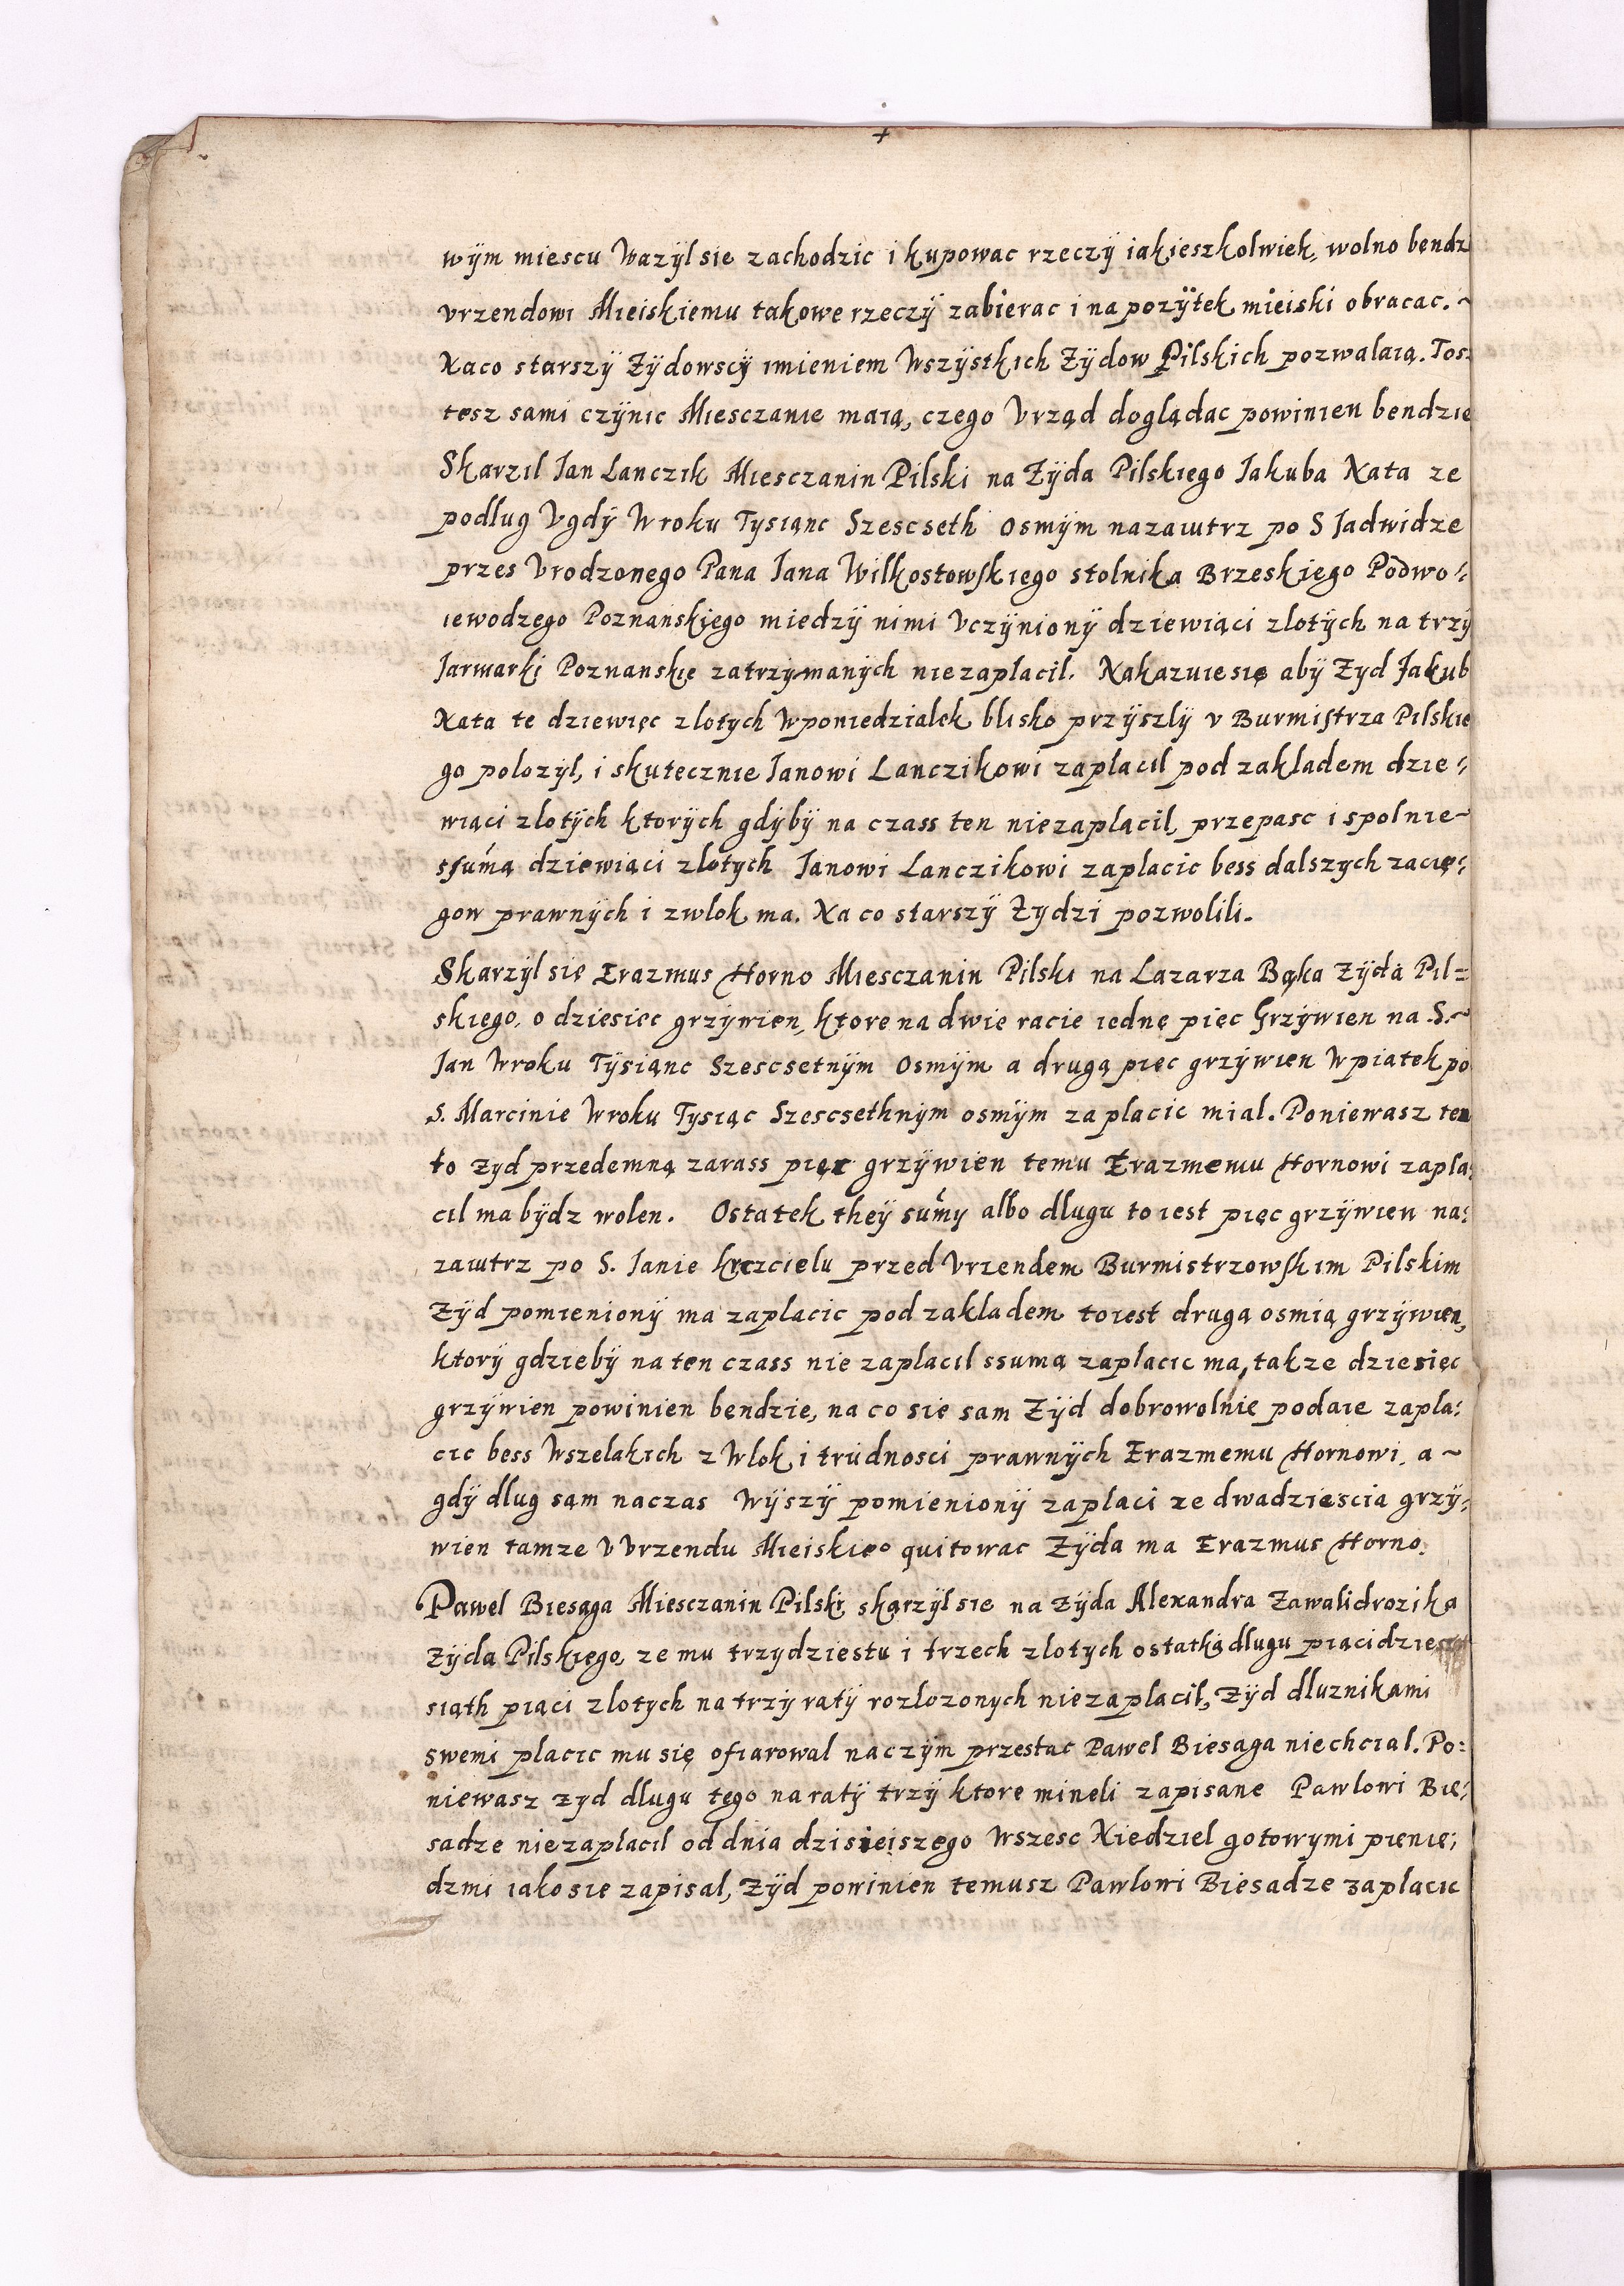 wÿm miescu Wazÿl sie zachodzic i kupowac rzeczÿ iakieszkolwiek, wolno bendz
vrzendowi Mieiskiemu takowe rzeczÿ zabierac i na pozÿtek mieiski obracac. ~
Naco starszÿ Zÿdowscÿ imieniem Wszÿstkich Zÿdow Pilskich pozwalaią. Tosz
tesz sami czÿnic Miesczanie maią, czego Vrząd doglądac powinien bendzie
Skarzil Jan Lanczik Miesczanin Pilski na Zÿda Pilskiego Jakuba Nata ze
podlug Vgdÿ W roku Tysiąnc Szescseth Osmÿm nazaiutrz po S Jadwidze
przes Vrodzonego Pana Jana Wilkostowskiego stolnika Brzeskiego Podwo⸗
iewodzego Poznanskiego miedzÿ nimi Vczÿnionÿ dziewiąci zlotÿch na trzÿ
Jarmarki Poznanskie zatrzymanÿch niezaplacil. Nakazuie się abÿ Zyd Jakub
Nata te dziewięc zlotych W poniedzialek blisko przÿszlÿ v Burmistrza Pilskie
go polozÿl, i skutecznie Janowi Lanczikowi zaplacil pod zakladem dzie⸗
wiąci zlotÿch ktorÿch gdÿbÿ na czass ten niezaplącil, przepasc i spolnie~
ssumą dziewiąci zlotych Janowi Lanczikowi zaplacic bess dalszych zacię⸗
gow prawnÿch i zwlok ma. Na co starszÿ Zydzi pozwolili.
Skarzÿl sie Erazmus Horno Miesczanin Pilski na Lazarza Bąka Zÿda Pil⸗
skiego, o dziesiec grzÿwien, ktore na dwie racie iednę pięc Grzÿwien na .S.~
Jan W roku Tÿsiąnc Szescsetnÿm Osmÿm a drugą pięc grzÿwien W piatek po
S. Marcinie W roku Tysiąc Szescsethnÿm osmÿm zaplacic mial. Poniewasz ten
to Zyd przedemną zarass pięc grzÿwien temu Erazmemu Hornowi zapla⸗
cil ma bÿdz wolen. Ostatek theÿ sumy albo dlugu to iest pięc grzÿwien na⸗
zaiutrz po S. Janie krzcielu przed Vrzendem Burmistrzowskim Pilskim
Zÿd pomienionÿ ma zaplacic pod zakladem toiest drugą osmią grzÿwien,
ktorÿ gdziebÿ na ten czass nie zaplacil ssumą zaplacic ma, takze dziesięc
grzÿwien powinien bendzie, na co sie sam Zÿd dobrowolnie podaie zapla⸗
cic bess Wszelakich zWlok i trudnosci prawnÿch Erazmemu Hornowi, a ~
gdÿ dlug sąm naczas Wÿszÿ pomienionÿ zaplaci ze dwadziescia grzÿ⸗
wien tamze V Vrzendu Mieiskieo quitowac Zÿda ma Erazmus Horno.
Pawel Biesąga Miesczanin Pilski skąrzÿl sie na Zÿda Alexandra Zawalidrozika
Zÿda Pilskiego ze mu trzydziestu i trzech zlotych ostatką dlugu piącidzie
siąth piąci zlotych na trzÿ ratÿ rozlozonych niezaplacil, Zÿd dluznikami
swemi placic mu się ofiarowal naczÿm przestac Pawel Biesąga niechcial. Po⸗
niewasz zyd dlugu tego na ratÿ trzÿ ktore mineli zapisane Pawlowi Bie⸗
sadze niezaplacil od dnia dzisieiszego Wszesc Niedziel gotowymi pienię⸗
dzmi iako sie zapisal, Zÿd powinien temusz Pawlowi Biesadze zaplacic